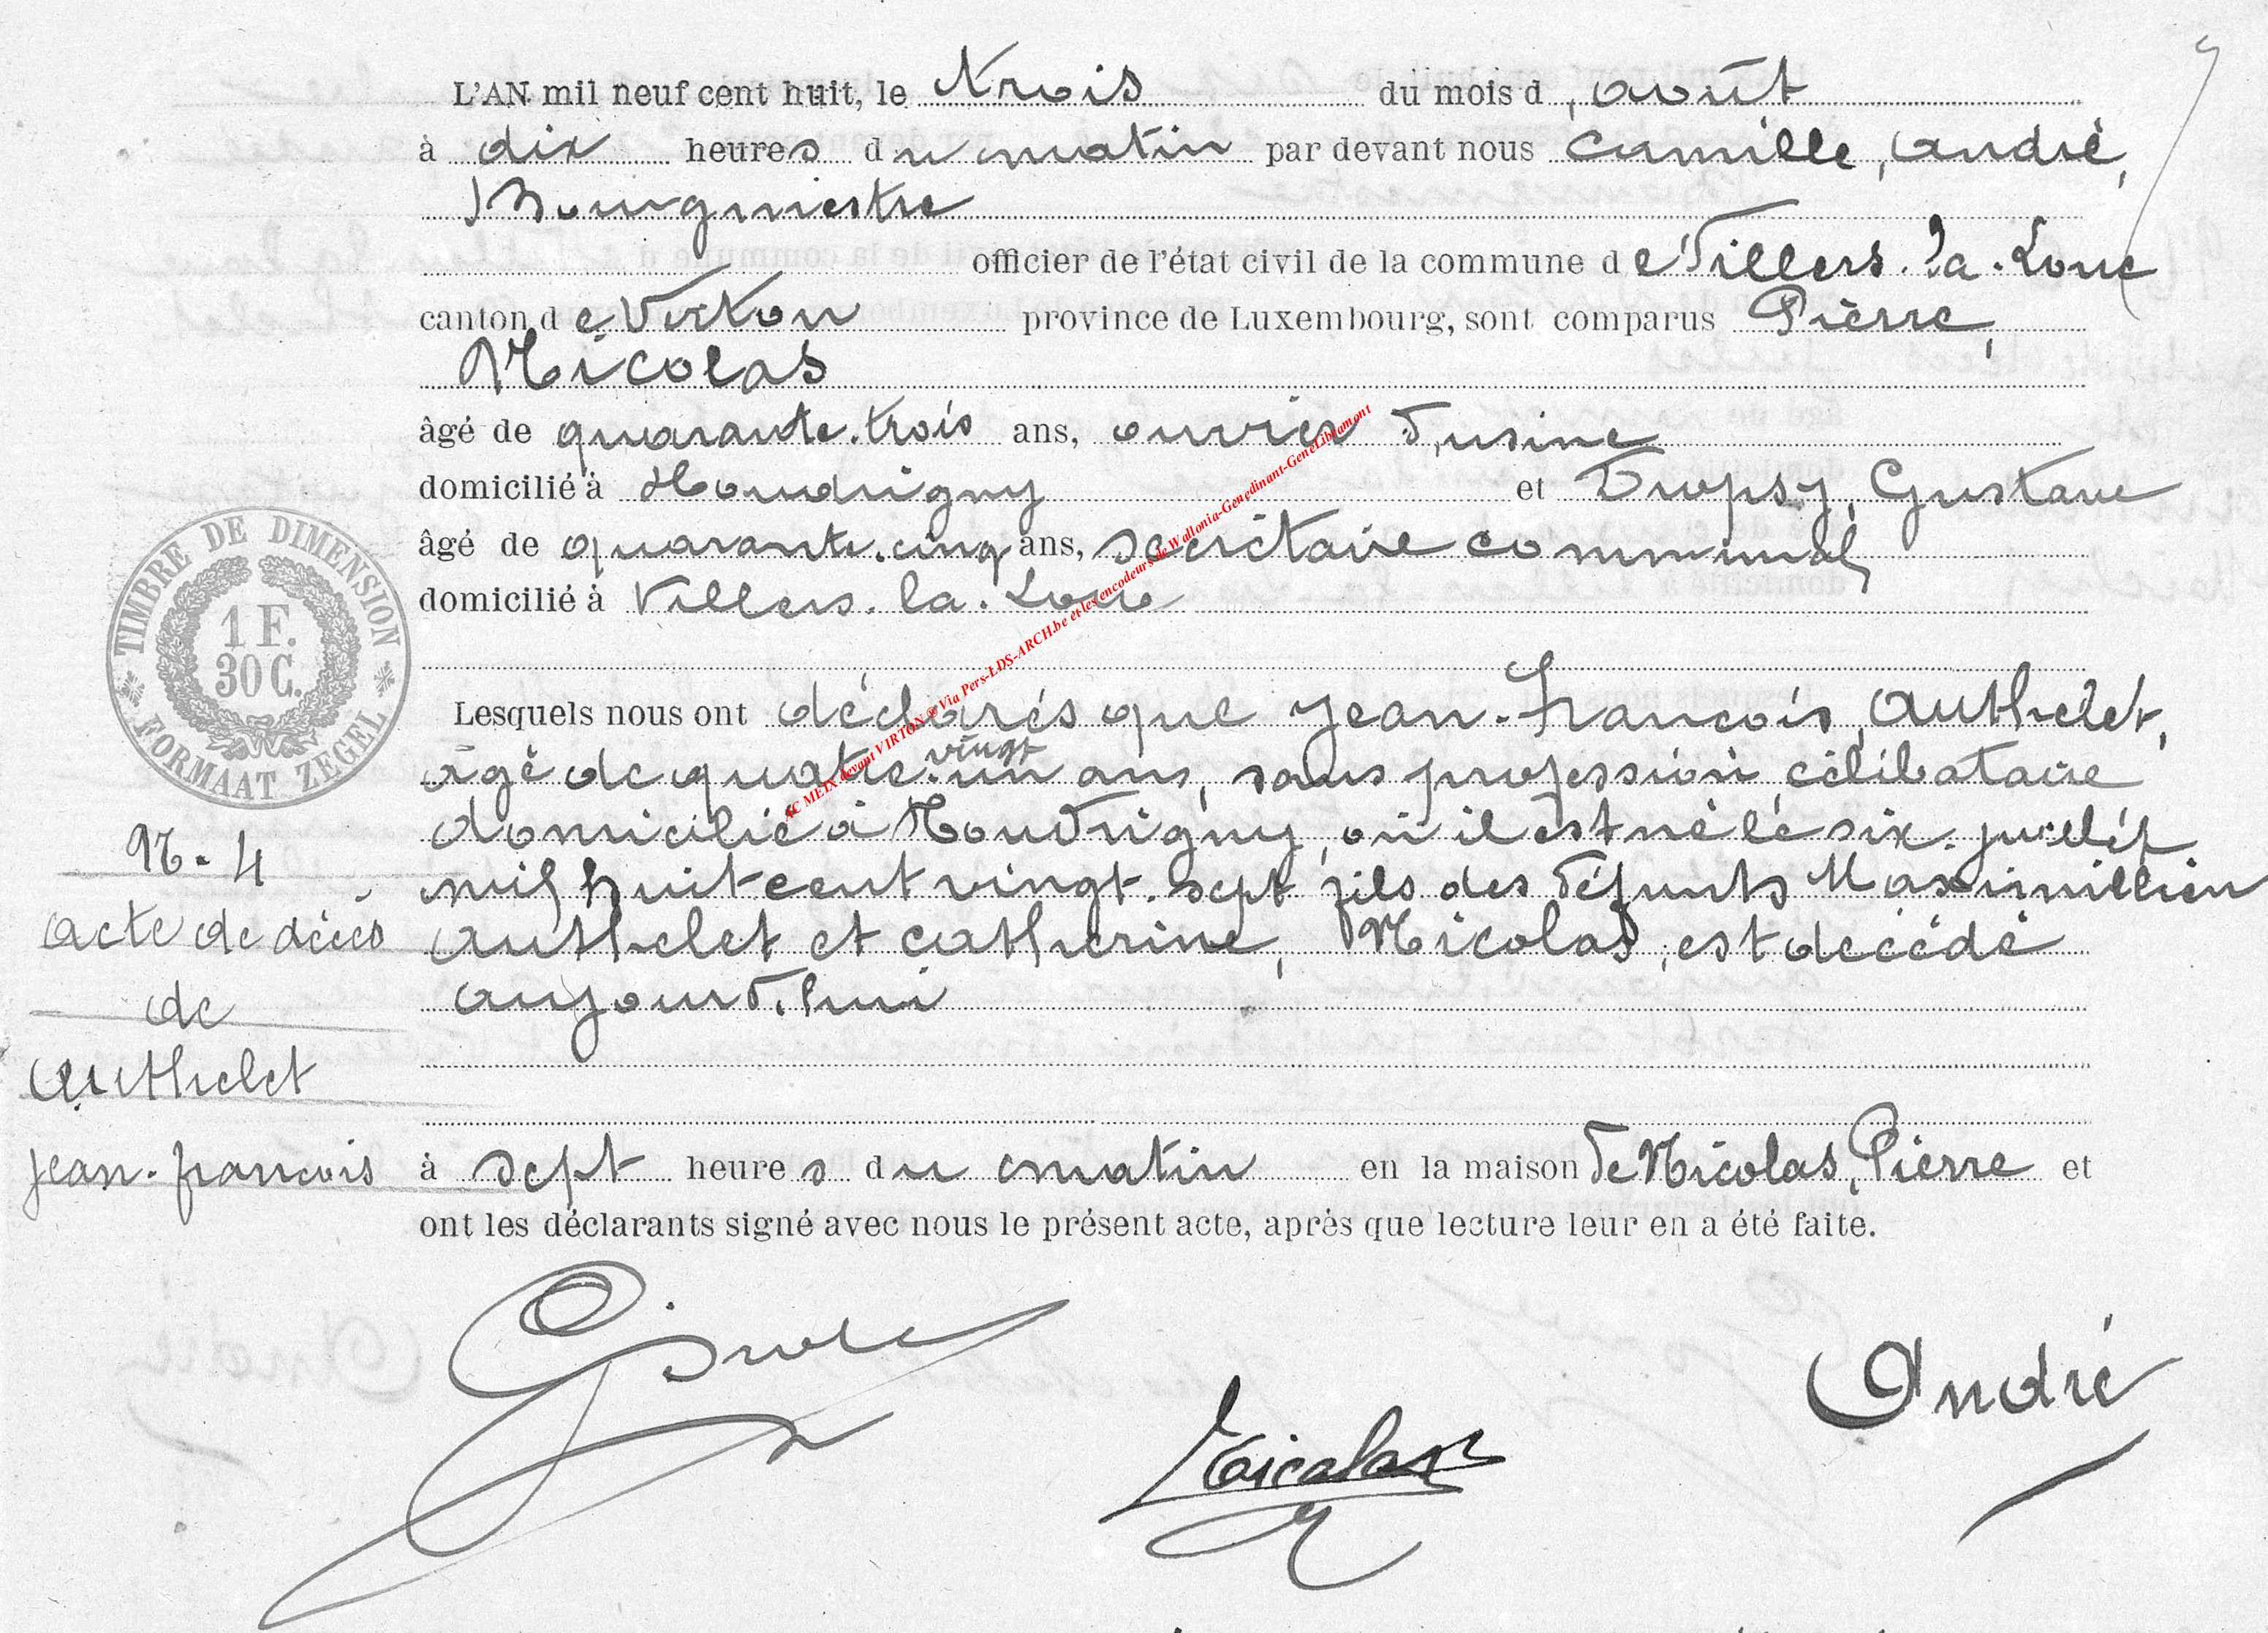 L'AN mil neuf cent huit, le trois du mois d'août
à dix heures du matin par devant nous Camille, André,
Bourgmestre
officier de l'état civil de la commune de Villers-la-Loue
canton de Virton province de Luxembourg, sont comparus Pierre,
Nicolas
âgé de quarante-trois ans, ouvrier d'usine
domicilié à Houdrigny et Dropsy, Gustave
âgé de quarante-cinq ans, secrétaire communal
domicilié à Villers-la-Loue
TIMBRE DE DIMENSION
1 F.
30 C.
FORMAAT ZEGEL
Lesquels nous ont déclarés que Jean-François, Authelet,
vingt
âgé de quatre-un ans, sans profession, célibataire
domicilié à Houdrigny, où il est né le six juillet
mil huit cent vingt-sept fils des défunts Maximillien
Authelet et Catherine, Nicolas, est décédé
aujourd'hui
N. 4
Acte de décès
de
Authelet
Jean-François
à sept heures du matin en la maison de Nicolas, Pierre et
ont les déclarants signé avec nous le présent acte, après que lecture leur en a été faite.
Nicolas
André
AC MEIX devant VIRTON ® Via Pers-LDS-ARCH.be et les encodeurs de Wallonia-Genedinant-GeneLibramont